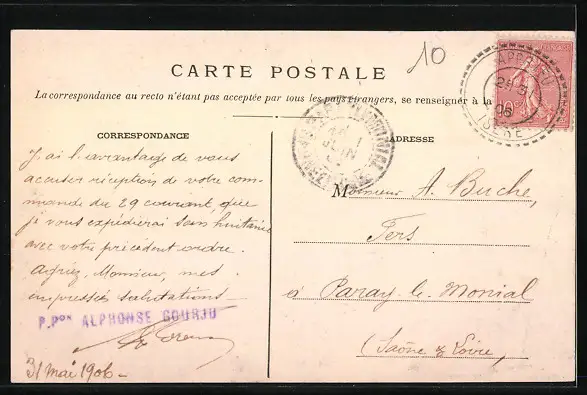 10
CARTE POSTALE
La correspondance au recto n'étant pas acceptée par tous les pays étrangers, se renseigner à la
CORRESPONDANCE
ADRESSE
J'ai l'avantage de vous
accuser réception de votre com-
mande du 29 courant, que
je vous expédierai sous huitaine
avec votre précédent ordre.
Agréez, Monsieur, mes
empressées salutations
P. Pon ALPHONSE GOURJU
31 mai 1906
Monsieur A. Buche,
Fers
à Paray le Monial
(Saône & Loire)
ISERE